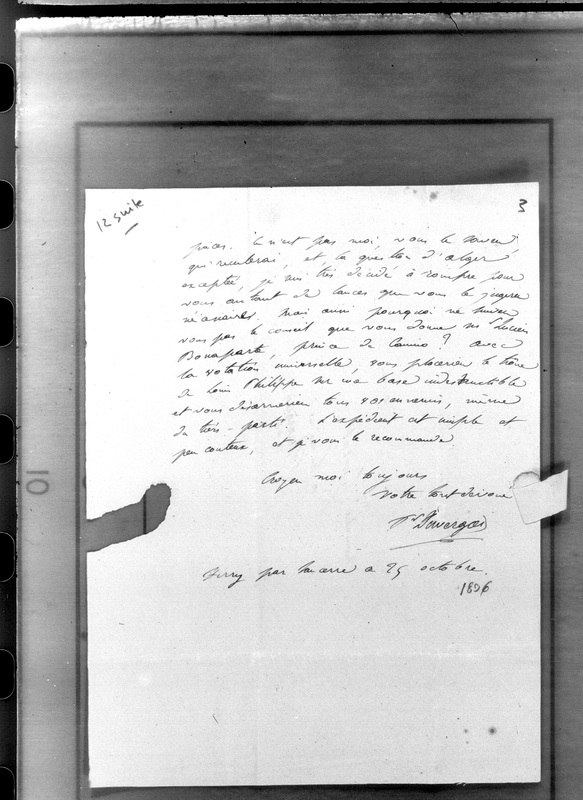 12 suite
3
pièces. Ce n'est pas moi, vous le savez,
qui reculerai, et la question d'alger
exceptée, je suis très décidé à rompre pour
vous autant de lances que vous le jugerez
nécessaires. Mais aussi pourquoi ne suivez
vous pas le conseil que vous donne Mr Lucien
Bonaparte, prince de Canino ? avec
la votation universelle, vous placeriez le trône
de Louis Philippe sur une base indestructible
et vous désarmeriez tous vos ennemis, même
du tiers-parti. L'expédient est simple et
peu couteux, et je vous le recommande.
Croyez moi toujours
Votre tout dévoué
Duvergier
par Sancerre 25 octobre.
1836
10